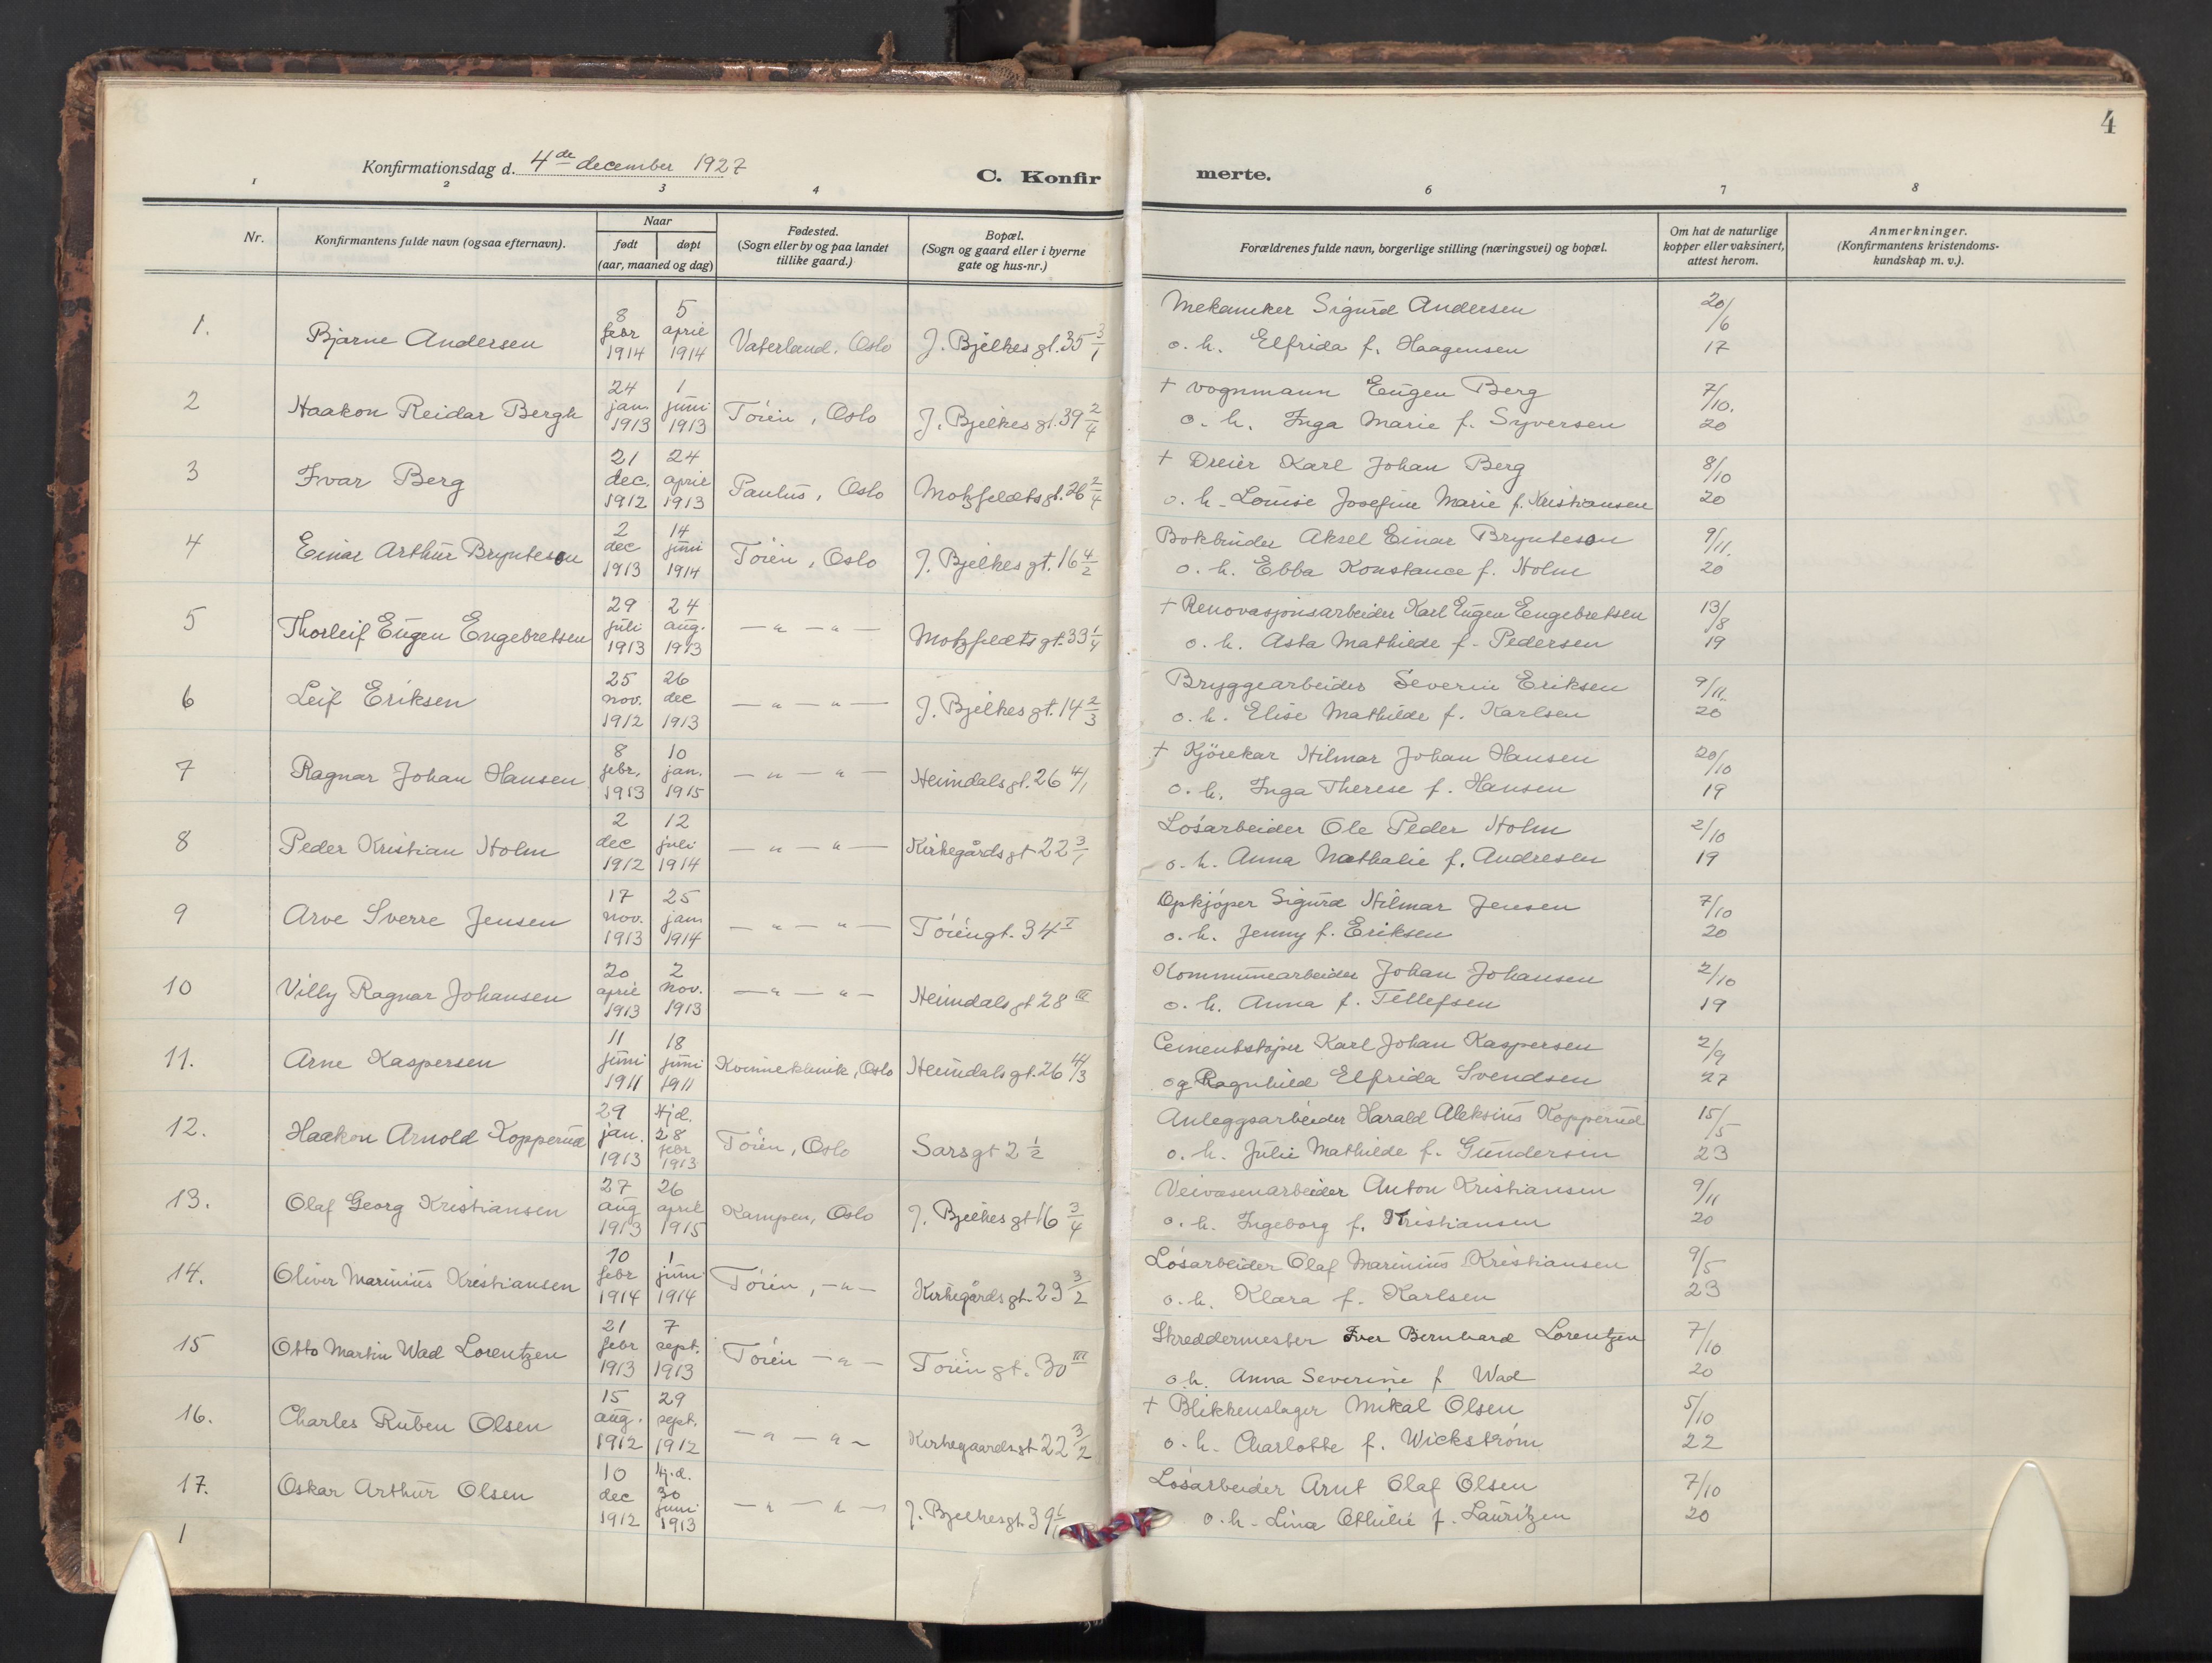 4
Konfirmationsdag d. 4de december 1927
C. Konfir merte.
1 2 3 4 6 7 8
Nr.
Konfirmantens fulde navn (ogsaa efternavn).
Naar
født døpt
(aar, maaned og dag)
Fødested.
(Sogn eller by og paa landet
tillike gaard.)
Bopæl.
(Sogn og gaard eller i byerne
gate og hus-nr.)
Forældrenes fulde navn, borgerlige stilling (næringsvei) og bopæl.
Om hat de naturlige
kopper eller vaksinert,
attest herom.
Anmerkninger.
(Konfirmantens kristendoms-
kundskap m. v.).
1. Bjarne Andersen 8 febr 1914 5 april 1914 Vaterland, Oslo J. Bjelkes gt. 35 3/1
Mekaniker Sigurd Andersen
o. h. Elfrida f. Haagensen 20/6 17
2 Haakon Reidar Bergh 24 jan 1913 1 juni 1913 Tøien, Oslo J. Bjelkes gt. 39 2/4
+ vognmann Eugen Berg
o. h. Inga Marie f. Syversen 7/10. 20
3 Ivar Berg 21 dec. 1912 24 april 1913 Paulus, Oslo Motzfeldts gt. 26 2/4
+ Dreier Karl Johan Berg
o. h. Louise Josefine Marie f. Kristiansen 8/10 20
4 Einar Arthur Bryntesøn 2 dec 1913 14 juni 1914 Tøien, Oslo J. Bjelkes gt. 16 4/2
Bokbinder Aksel Einar Bryntesøn
o. h. Ebba Konstance f. Holm 9/11. 20
5 Thorleif Eugen Engebretsen 29 juli 1913 24 aug. 1913 — " — " — Motzfeldts gt. 33 1/4
+ Renovasjonsarbeider Karl Eugen Engebretsen
o. h. Asta Mathilde f. Pedersen 13/8 19
6 Leif Eriksen 25 nov. 1912 26 dec 1913 — " — " — J. Bjelkes gt. 14 2/3
Bryggearbeider Severin Eriksen
o. h. Elise Mathilde f. Karlsen 9/11. 20
7 Ragnar Johan Hansen 8 febr. 1913 10 jan. 1915 — " — " — Heimdals gt. 26 4/1
+ Kjørekar Hilmar Johan Hansen
o. h. Inga Therese f. Hansen 20/10 19
8 Peder Kristian Holm 2 dec 1912 12 juli 1914 — " — " — Kirkegårds gt 22 3/1
Løsarbeider Ole Peder Holm
o. h. Anna Nathalie f. Andresen 2/10 19
9 Arve Sverre Jensen 17 nov. 1913 25 jan 1914 — " — " — Tøiengt. 34 I
Opkjøper Sigurd Hilmar Jensen
o. h. Jenny f. Eriksen 7/10 20
10 Villy Ragnar Johansen 20 april 1913 2 nov. 1913 — " — " — Heimdals gt 28 III
Kommunearbeider Johan Johansen
o. h. Anna f. Tellefsen 2/10 19
11. Arne Kaspersen 11 juni 1911 18 juni 1911 Kvinneklinik, Oslo Heimdals gt. 26 4/3
Cementstøper Karl Johan Kaspersen
og Ragnhild Elfrida Svendsen 2/9 27
12. Haakon Arnold Kopperud 29 jan. 1913 Hj d. 28 febr 1913 Tøien, Oslo Sars gt 2 1/2
Anleggsarbeider Harald Aleksius Kopperud
o. h. Julie Mathilde f. Gundersen 15/5 23
13. Olaf Georg Kristiansen 27 aug 1913 26 april 1915 Kampen, Oslo J. Bjelkes gt 16 3/4
Veivæsenarbeider Anton Kristiansen
o. h. Ingeborg f. Kristiansen 9/11 20
14. Oliver Marinius Kristiansen 10 febr 1914 1 juni 1914 Tøien, — " — Kirkegårds gt. 23 3/2
Løsarbeider Olaf Marinius Kristiansen
o. h. Klara f. Karlsen 9/5 23
15 Otto Martin Wad Lorentzen 21 febr 1913 7 sept. 1913 Tøien — " — Tøien gt. 30 III
Skreddermester Iver Bernhard Lorentzen
o. h. Anna Severine f Wad 7/10 20
16. Charles Ruben Olsen 15 aug. 1912 29 sept. 1912 — " — " — Kirkegaards gt 22 3/2
+ Blikkenslager Mikal Olsen
o. h. Charlotte f. Wickstrøm 5/10 22
17. Oskar Arthur Olsen 10 dec 1912 Hj. d. 30 juni 1913 — " — " — J. Bjelkes gt. 39
Løsarbeider Arnt Olaf Olsen
o. h. Lina Othilie f. Lauritzen 7/10 20
1